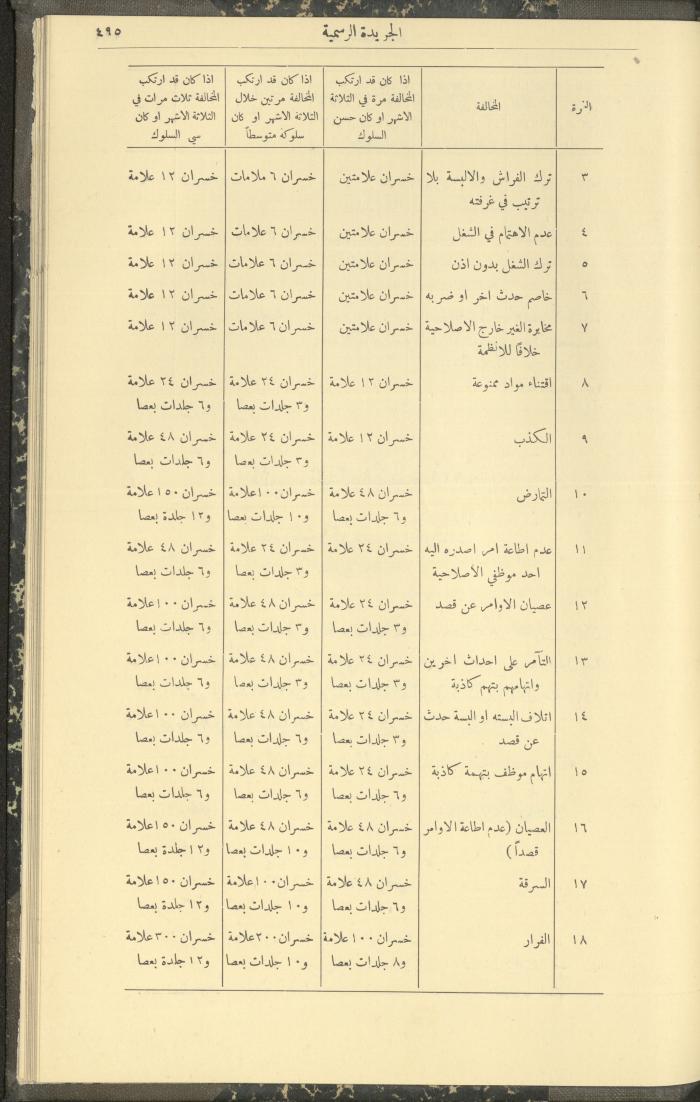 الجريدة الرسمية ٤٩٥
النمرة | المخالفة | اذا كان قد ارتكب | اذا كان قد ارتكب | اذا كان قد ارتكب
المخالفة مرة في الثلاثة | المخالفة مرتين خلال | المخالفة ثلاث مرات في
الاشهر او كان حسن | الثلاثة الاشهر او كان | الثلاثة الاشهر او كان
السلوك | سلوكه متوسطاً | سي السلوك
٣ | ترك الفراش والالبسة بلا | خسران علامتين | خسران ٦ ملامات | خسران ١٢ علامة
ترتيب في غرفته
٤ | عدم الاهتمام في الشغل | خسران علامتين | خسران ٦ علامات | خسران ١٢ علامة
٥ | ترك الشغل بدون اذن | خسران علامتين | خسران ٦ علامات | خسران ١٢ علامة
٦ | خاصم حدث اخر او ضربه | خسران علامتين | خسران ٦ علامات | خسران ١٢ علامة
٧ | مخابرة الغير خارج الاصلاحية | خسران علامتين | خسران ٦ علامات | خسران ١٢ علامة
خلافًا للانظمة
٨ | اقتناء مواد ممنوعة | خسران ١٢ علامة | خسران ٢٤ علامة | خسران ٢٤ علامة
و٣ جلدات بعصا | و٦ جلدات بعصا
٩ | الكذب | خسران ١٢ علامة | خسران ٢٤ علامة | خسران ٤٨ علامة
و٣ جلدات بعصا | و٦ جلدات بعصا
١٠ | التمارض | خسران ٤٨ علامة | خسران ١٠٠ علامة | خسران ١٥٠ علامة
و٦ جلدات بعصا | و١٠ جلدات بعصا | و١٢ جلدة بعصا
١١ | عدم اطاعة امر اصدره اليه | خسران ٢٤ علامة | خسران ٢٤ علامة | خسران ٤٨ علامة
احد موظفي الاصلاحية | و٣ جلدات بعصا | و٦ جلدات بعصا
١٢ | عصيان الاوامر عن قصد | خسران ٢٤ علامة | خسران ٤٨ علامة | خسران ١٠٠ علامة
و٣ جلدات بعصا | و٣ جلدات بعصا | و٦ جلدات بعصا
١٣ | التآمر على احداث اخرين | خسران ٢٤ علامة | خسران ٤٨ علامة | خسران ١٠٠ علامة
واتهامهم بتهم كاذبة | و٣ جلدات بعصا | و٣ جلدات بعصا | و٦ جلدات بعصا
١٤ | اتلاف البسته او البسة حدث | خسران ٢٤ علامة | خسران ٤٨ علامة | خسران ١٠٠ علامة
عن قصد | و٣ جلدات بعصا | و٦ جلدات بعصا | و٦ جلدات بعصا
١٥ | اتهام موظف بتهمة كاذبة | خسران ٢٤ علامة | خسران ٤٨ علامة | خسران ١٠٠ علامة
و٦ جلدات بعصا | و٦ جلدات بعصا | و٦ جلدات بعصا
١٦ | العصيان (عدم اطاعة الاوامر | خسران ٤٨ علامة | خسران ٤٨ علامة | خسران ١٥٠ علامة
قصداً) | و٦ جلدات بعصا | و١٠ جلدات بعصا | و١٢ جلدة بعصا
١٧ | السرقة | خسران ٤٨ علامة | خسران ١٠٠ علامة | خسران ١٥٠ علامة
و٦ جلدات بعصا | و١٠ جلدات بعصا | و١٢ جلدة بعصا
١٨ | الفرار | خسران ١٠٠ علامة | خسران ٢٠٠ علامة | خسران ٣٠٠ علامة
و٨ جلدات بعصا | و١٠ جلدات بعصا | و١٢ جلدة بعصا